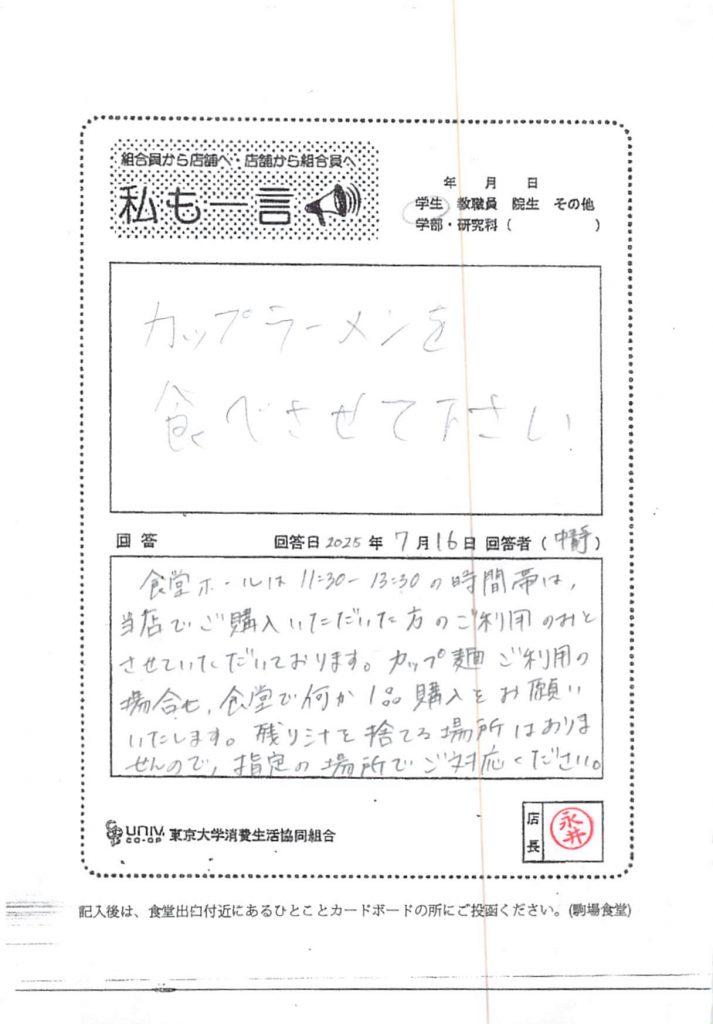 組合員から店舗へ・店舗から組合員へ
私も一言
年 月 日
学生 教職員 院生 その他
学部・研究科( )
カップラーメンを
食べさせて下さい
回答 回答日2025年7月16日 回答者(中静)
食堂ホールは11:30-13:30の時間帯は、
当店でご購入いただいた方のご利用のみと
させていただいております。カップ麺ご利用の
場合も、食堂で何か1品購入をお願い
いたします。残り汁を捨てる場所はありま
せんので、指定の場所でご対応ください。
UNIV. CO-OP 東京大学消費生活協同組合
店長 永井
記入後は、食堂出口付近にあるひとことカードボードの所にご投函ください。(駒場食堂)